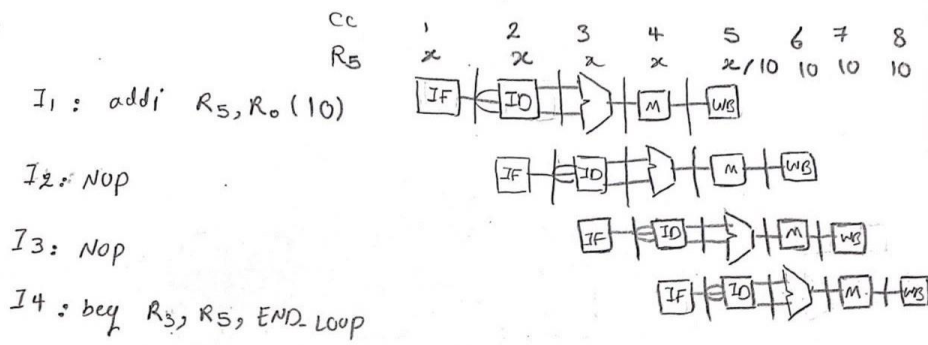 CC 1 2 3 4 5 6 7 8
R5 x x x x x/10 10 10 10
I1 : addi R5, R0 (10) IF ID M WB
I2: NOP IF ID M WB
I3: NOP IF ID M WB
I4 : beq R3, R5, END_LOOP IF ID M WB